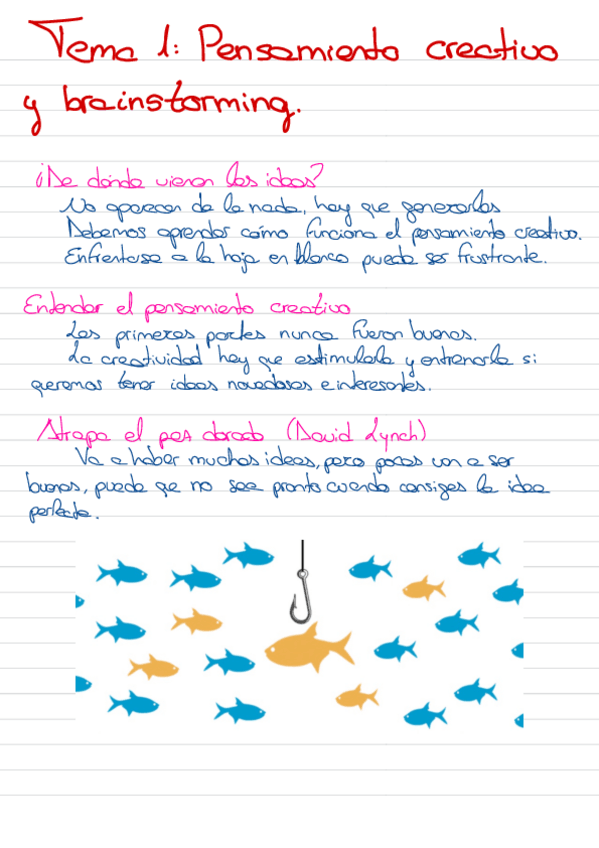 Tema 1: Pensamiento creativo
y brainstorming.
¿De dónde vienen las ideas?
No aparecen de la nada, hay que generarlas
Debemos aprender cómo funciona el pensamiento creativo.
Enfrentarse a la hoja en blanco puede ser frustrante.
Entender el pensamiento creativo
Las primeras partes nunca fueron buenas.
La creatividad hay que estimularla y entrenarla si
queremos tener ideas novedosas e interesantes.
Atrapa el pez dorado (David Lynch)
Va a haber muchas ideas, pero pocas van a ser
buenas, puede qe no sea pronto cuando consigas la idea
perfecta.